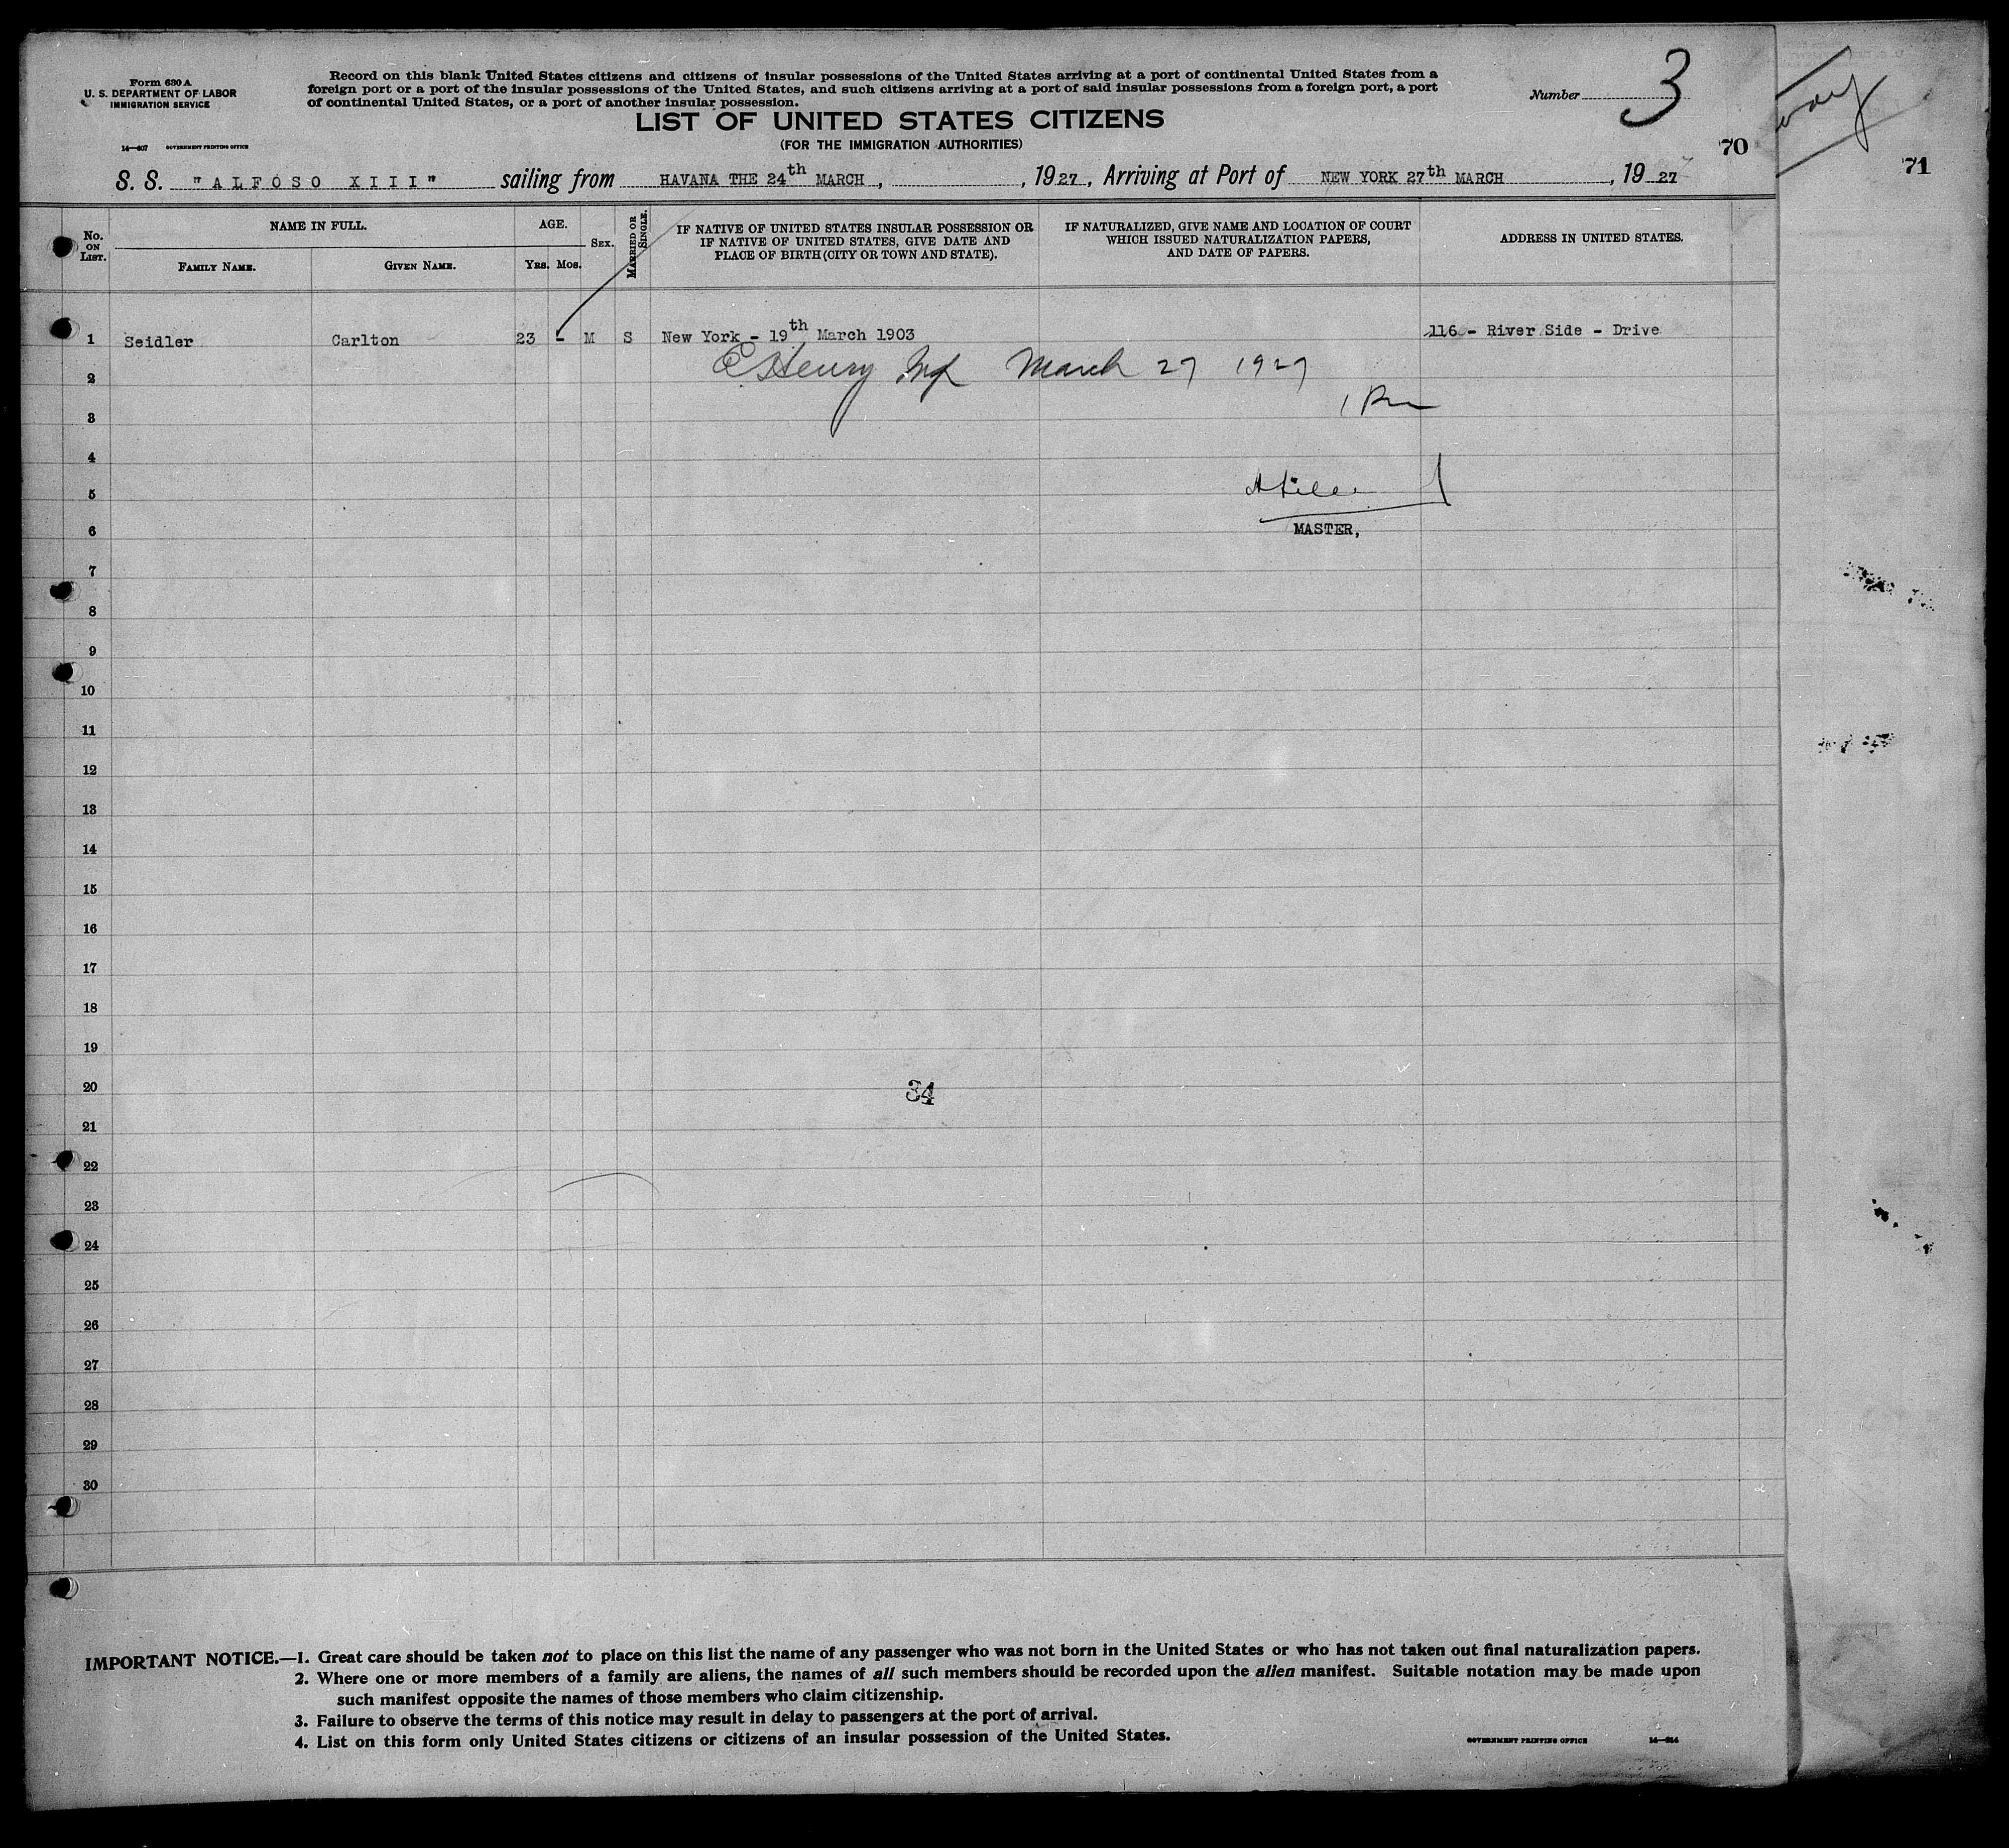 Form 630 A
U. S. DEPARTMENT OF LABOR
IMMIGRATION SERVICE
14—607 GOVERNMENT PRINTING OFFICE
Record on this blank United States citizens and citizens of insular possessions of the United States arriving at a port of continental United States from a
foreign port or a port of the insular possessions of the United States, and such citizens arriving at a port of said insular possessions from a foreign port, a port
of continental United States, or a port of another insular possession.
LIST OF UNITED STATES CITIZENS
(FOR THE IMMIGRATION AUTHORITIES)
Number 3
70
71
S. S. "ALFOSO XIII" sailing from HAVANA THE 24th MARCH, , 1927, Arriving at Port of NEW YORK 27th MARCH, 1927
No. ON LIST.
NAME IN FULL.
FAMILY NAME. GIVEN NAME.
AGE.
YRS. MOS.
SEX.
MARRIED OR SINGLE.
IF NATIVE OF UNITED STATES INSULAR POSSESSION OR
IF NATIVE OF UNITED STATES, GIVE DATE AND
PLACE OF BIRTH (CITY OR TOWN AND STATE).
IF NATURALIZED, GIVE NAME AND LOCATION OF COURT
WHICH ISSUED NATURALIZATION PAPERS,
AND DATE OF PAPERS.
ADDRESS IN UNITED STATES.
1 Seidler Carlton 23 - M S New York - 19th March 1903 116 - River Side - Drive
2 Henry March 27 1927
3
4
5
6 MASTER,
7
8
9
10
11
12
13
14
15
16
17
18
19
20 34
21
22
23
24
25
26
27
28
29
30
IMPORTANT NOTICE.—1. Great care should be taken not to place on this list the name of any passenger who was not born in the United States or who has not taken out final naturalization papers.
2. Where one or more members of a family are aliens, the names of all such members should be recorded upon the alien manifest. Suitable notation may be made upon
such manifest opposite the names of those members who claim citizenship.
3. Failure to observe the terms of this notice may result in delay to passengers at the port of arrival.
4. List on this form only United States citizens or citizens of an insular possession of the United States.
GOVERNMENT PRINTING OFFICE